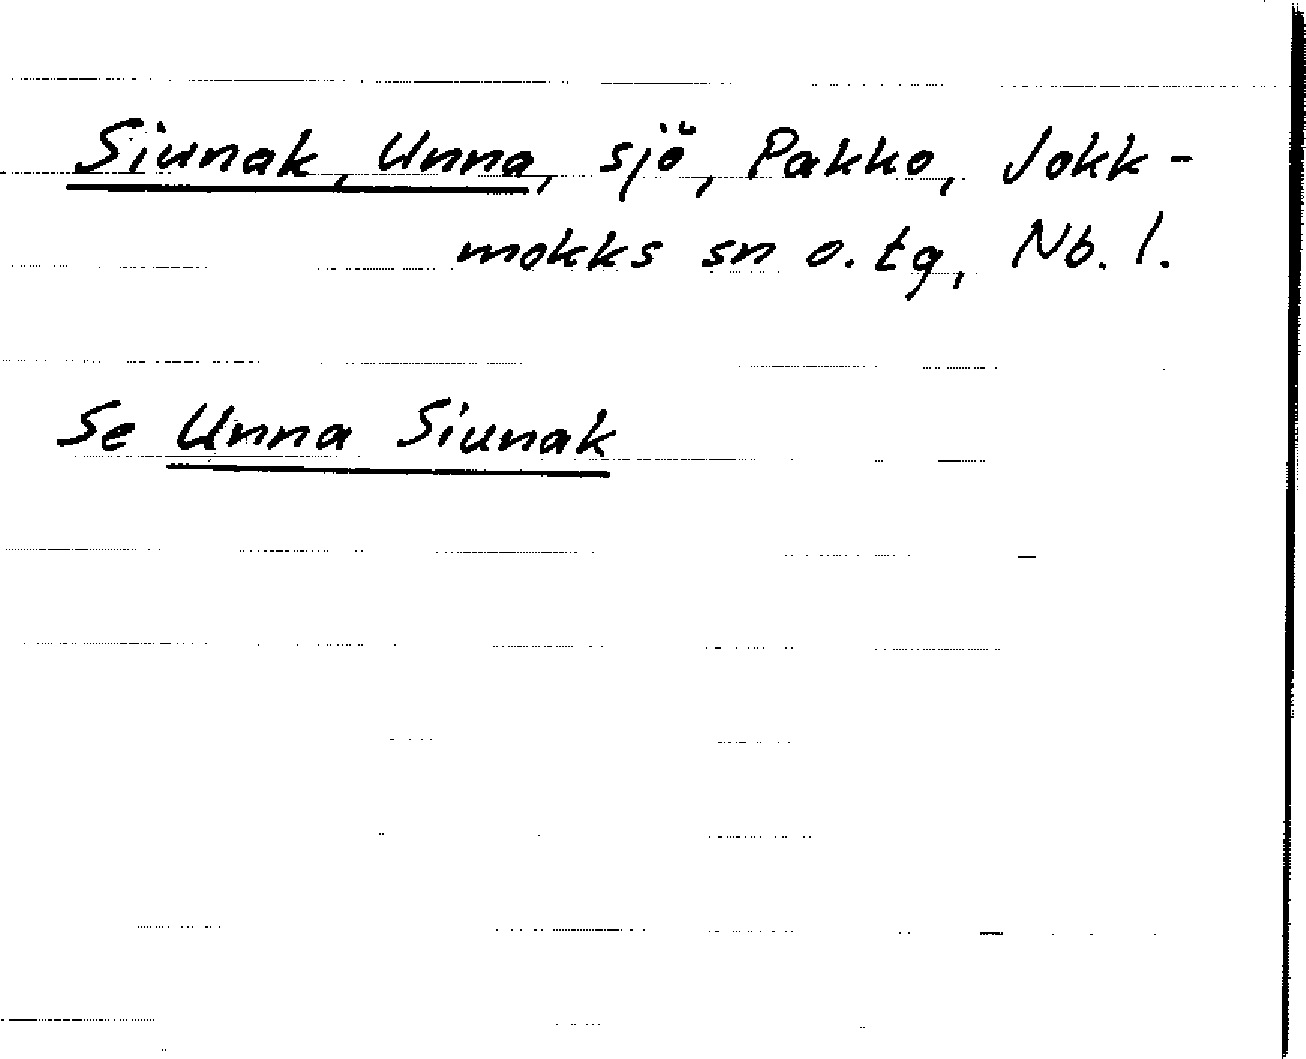 Siunak, Unna, sjö, Pakko, Jokk-
mokks sn o. tg, Nb. l.
Se Unna Siunak